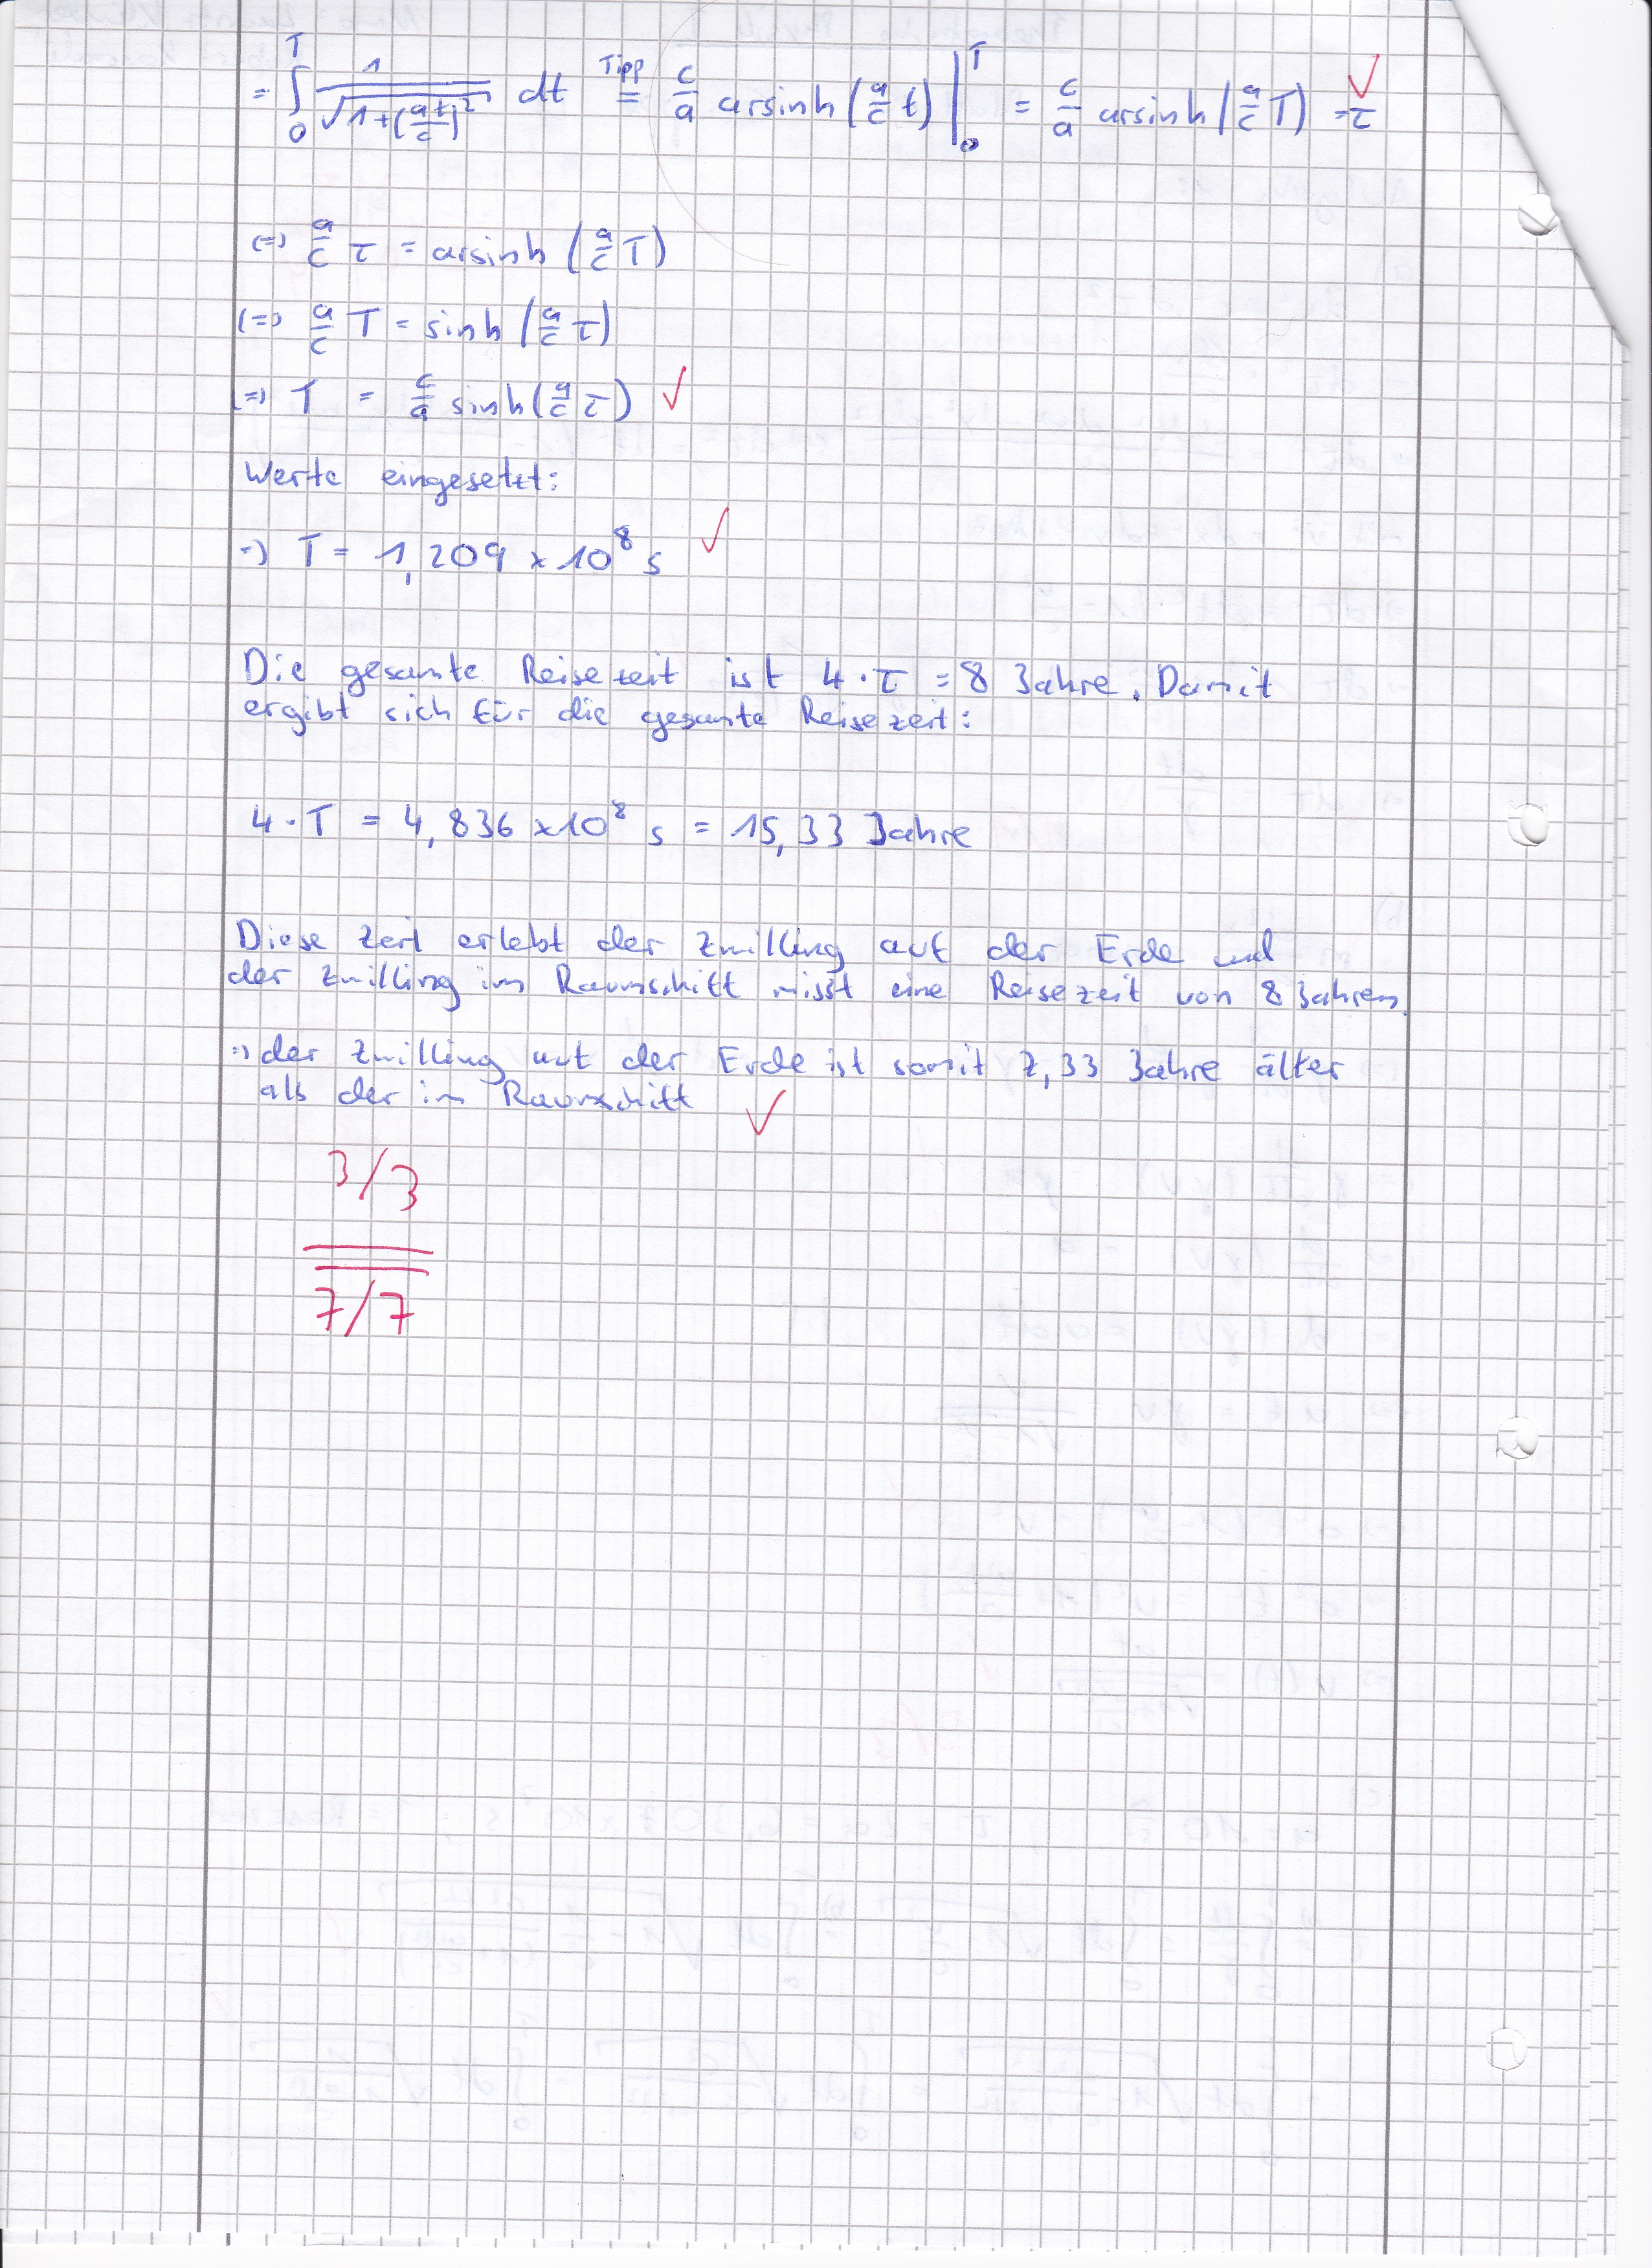 = ∫₀ᵀ 1/√(1+(at/c)²) dt =(Tipp) c/a arsinh(a/c t) |₀ᵀ = c/a arsinh(a/c T) = τ ✓
(=) a/c τ = arsinh (a/c T)
(=) a/c T = sinh (a/c τ)
(=) T = c/a sinh(a/c τ) ✓
Werte eingesetzt:
=) T = 1,209 x 10⁸ s ✓
Die gesamte Reisezeit ist 4 · τ = 8 Jahre. Damit
ergibt sich für die gesamte Reisezeit:
4 · T = 4,836 x10⁸ s = 15,33 Jahre
Diese Zeit erlebt der Zwilling auf der Erde und
der Zwilling im Raumschiff misst eine Reisezeit von 8 Jahren.
=) der Zwilling auf der Erde ist somit 7,33 Jahre älter
als der im Raumschiff ✓
3/3
7/7